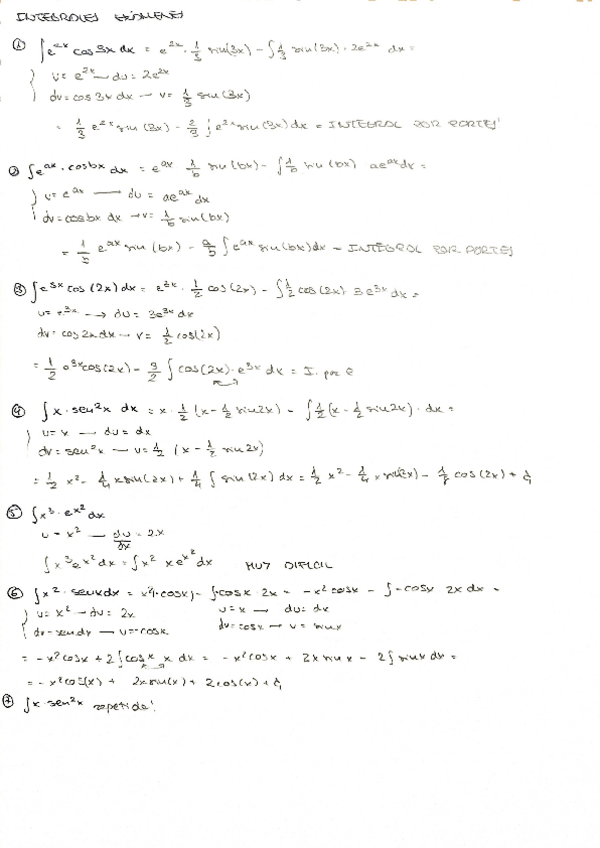 INTEGRALES EXÁMENES
① ∫e^{2x} cos 3x dx = e^{2x} · 1/3 sin(3x) − ∫1/3 sin(3x) · 2e^{2x} dx =
u = e^{2x} — du = 2e^{2x}
dv = cos 3x dx → v = 1/3 sin(3x)
= 1/3 e^{2x} sin(3x) − 2/3 ∫e^{2x} sin(3x) dx = INTEGRAL POR PARTES
② ∫e^{ax} · cos bx dx = e^{ax} 1/b sin(bx) − ∫1/b sin(bx) ae^{ax} dx =
u = e^{ax} — du = ae^{ax} dx
dv = cos bx dx → v = 1/b sin(bx)
= 1/b e^{ax} sin(bx) − a/b ∫e^{ax} sin(bx) dx = INTEGRAL POR PARTES
③ ∫e^{3x} cos(2x) dx = e^{3x} · 1/2 cos(2x) − ∫1/2 cos(2x) · 3e^{3x} dx =
u = e^{3x} → du = 3e^{3x} dx
dv = cos 2x dx → v = 1/2 cos(2x)
= 1/2 e^{3x} cos(2x) − 3/2 ∫cos(2x) · e^{3x} dx = I. por P
④ ∫x · sen²x dx = x · 1/2 (x − 1/2 sin 2x) − ∫1/2 (x − 1/2 sin 2x) · dx =
u = x — du = dx
dv = sen²x — v = 1/2 (x − 1/2 sin 2x)
= 1/2 x² − 1/4 x sin(2x) + 1/4 ∫sin(2x) dx = 1/2 x² − 1/4 x sin(2x) − 1/8 cos(2x) + C
⑤ ∫x³ · e^{x²} dx
u = x² — du/dx = 2x
∫x³ e^{x²} dx = ∫x² x e^{x²} dx MUY DIFICIL
⑥ ∫x² · senx dx = x²(−cosx) − ∫−cosx · 2x = −x² cosx − ∫−cosx 2x dx =
u = x² → du = 2x u = x → du = dx
dv = senx dx → v = −cosx dv = cosx → v = sinx
= −x² cosx + 2∫cosx x dx = −x² cosx + 2x sinx − 2∫sinx dx =
= −x² cos(x) + 2x sin(x) + 2cos(x) + C
⑦ ∫x · sen²x repetida!